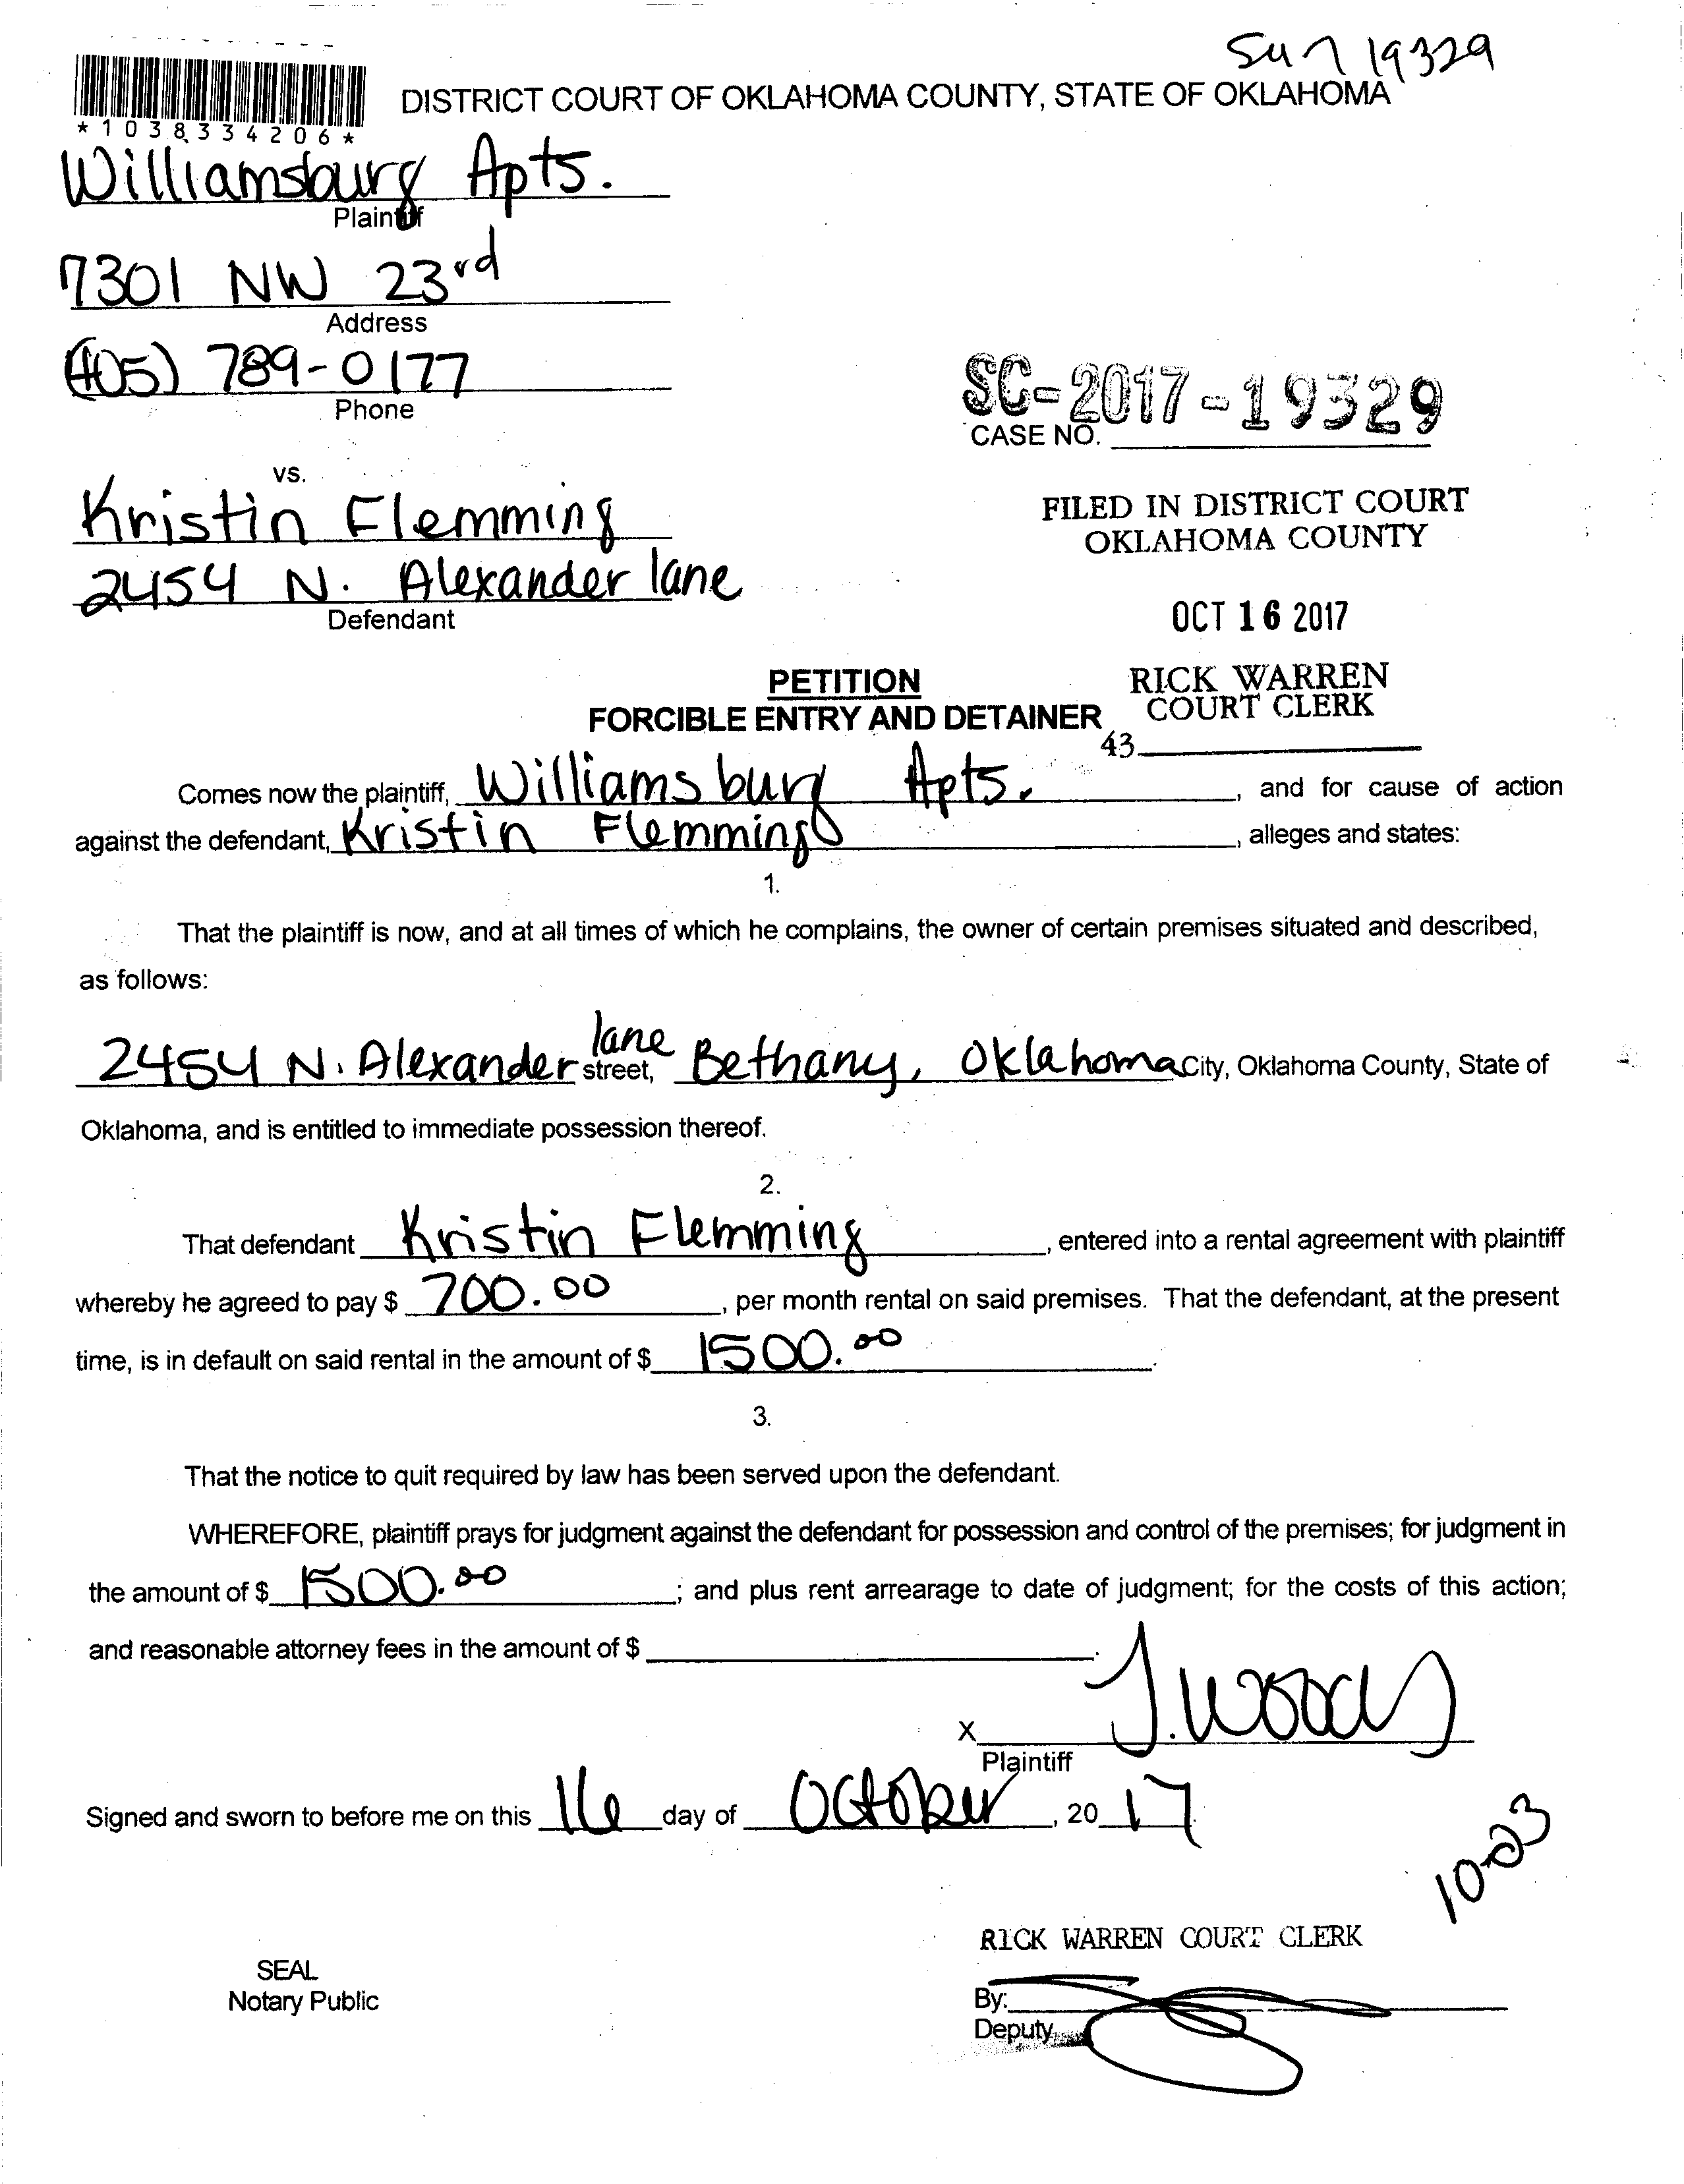 19329
DISTRICT COURT OF OKLAHOMA COUNTY, STATE OF OKLAHOMA
*1038334206*
Williamsburg Apts.
Plaintiff
7301 NW 23rd
Address
(405) 789-0177
Phone
SC-2017-19329
CASE NO.
vs.
Kristin Flemming
FILED IN DISTRICT COURT
OKLAHOMA COUNTY
2454 N. Alexander lane
Defendant
OCT 16 2017
PETITION
RICK WARREN
FORCIBLE ENTRY AND DETAINER
COURT CLERK
43
Comes now the plaintiff, Williamsburg Apts., and for cause of action
against the defendant, Kristin Flemming, alleges and states:
1.
That the plaintiff is now, and at all times of which he complains, the owner of certain premises situated and described,
as follows:
2454 N. Alexander lane street, Bethany, Oklahoma City, Oklahoma County, State of
Oklahoma, and is entitled to immediate possession thereof.
2.
That defendant Kristin Flemming, entered into a rental agreement with plaintiff
whereby he agreed to pay $ 700.00, per month rental on said premises. That the defendant, at the present
time, is in default on said rental in the amount of $ 1500.00.
3.
That the notice to quit required by law has been served upon the defendant.
WHEREFORE, plaintiff prays for judgment against the defendant for possession and control of the premises; for judgment in
the amount of $ 1500.00; and plus rent arrearage to date of judgment; for the costs of this action;
and reasonable attorney fees in the amount of $ .
X J. Woods
Plaintiff
Signed and sworn to before me on this 16 day of October, 2017.
10-23
RICK WARREN COURT CLERK
SEAL
Notary Public
By:
Deputy